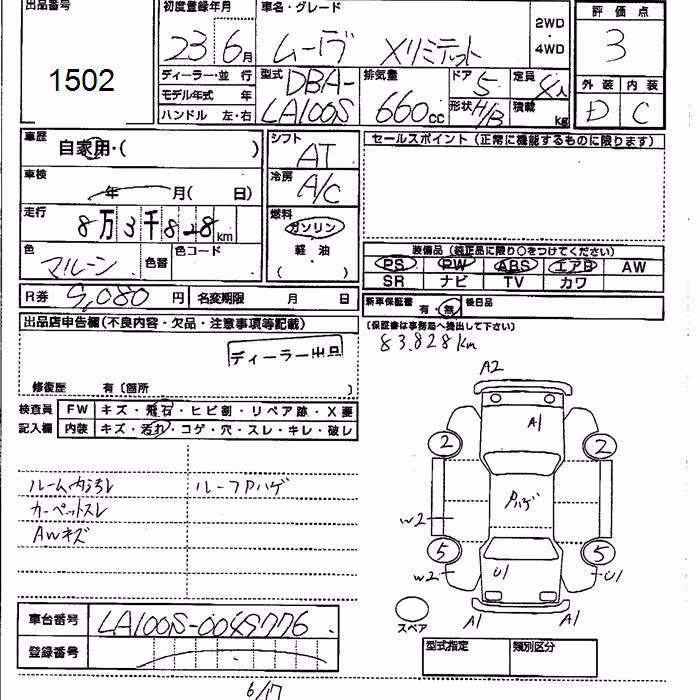 出品番号
1502
初度登録年月
23 6月
車名・グレード
ムーヴ Xリミテット
2WD
・
4WD
評価点
3
外装 内装
D C
ディーラー・並行
モデル年式 年
ハンドル 左・右
型式 DBA-
LA100S
排気量
660cc
ドア 5
形状 H/B
定員 4人
積載 kg
車歴
自家用・( )
車検
年 月( 日)
走行
8万3千828km
色
マルーン
色替
色コード
シフト
AT
冷房
A/C
燃料
ガソリン
・
軽・油
( )
セールスポイント(正常に機能するものに限ります)
装備品(純正品に限り○をつけてください)
PS PW ABS エアB AW
SR ナビ TV カワ
R券 9,080 円 名変期限 月 日
新車保証書 有・無 後日品
(保証書は事務局へ提出して下さい)
83,828km
出品店申告欄(不良内容・欠品・注意事項等記載)
ディーラー出品
修復歴 有〔箇所 〕
検査員 FW キズ・飛石・ヒビ割・リペア跡・X要
記入欄 内装 キズ・汚れ・コゲ・穴・スレ・キレ・破レ
ルーム内汚レ
カーペットスレ
AWキズ
ルーフPハゲ
A2
A1
2
2
Pハゲ
W2
5
5
W2
U1
U1
A1
A1
スペア
車台番号 LA100S-0049776
登録番号
型式指定 類別区分
6/17